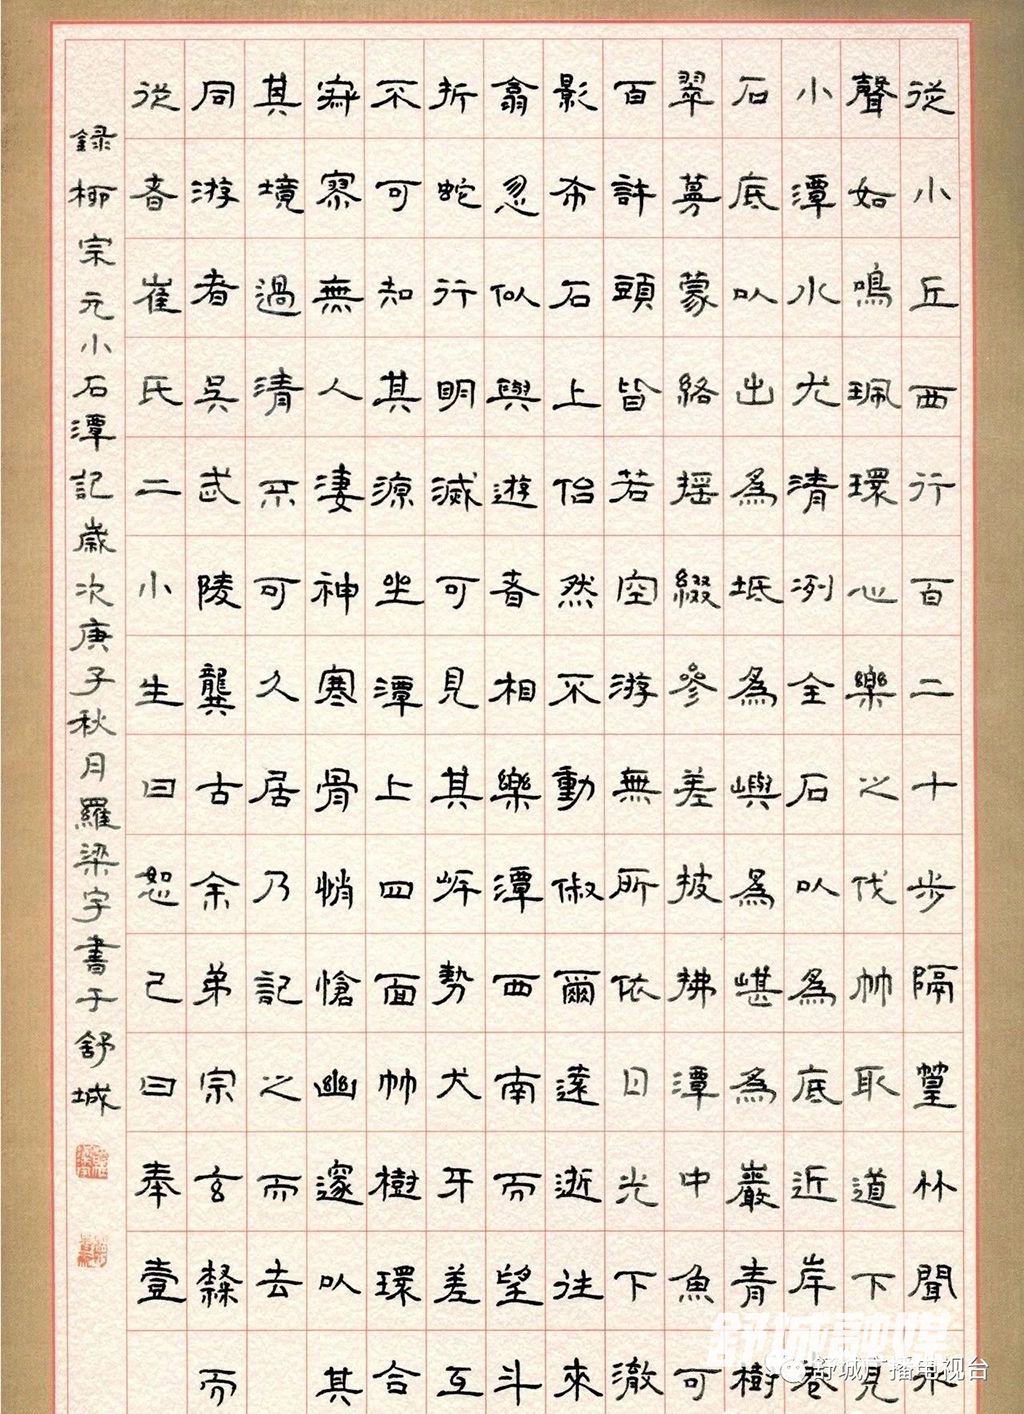 從小丘西行百二十步隔篁竹聞水
聲如鳴珮環心樂之伐竹取道下見
小潭水尤清冽全石以為底近岸卷
石底以出為坻為嶼為嵁為巖青樹
翠蔓蒙絡摇綴參差披拂潭中魚可
百許頭皆若空游無所依日光下澈
影布石上佁然不動俶爾遠逝往來
翕忽似與遊者相樂潭西南而望斗
折蛇行明滅可見其岸勢犬牙差互
不可知其源坐潭上四面竹樹環合
寂寥無人凄神寒骨悄愴幽邃以其
其境過清不可久居乃記之而去
同游者吳武陵龔古余弟宗玄隸而
從者崔氏二小生曰恕己曰奉壹
録柳宗元小石潭記歲次庚子秋月羅梁宇書于舒城
舒城融媒
舒城广播电视台